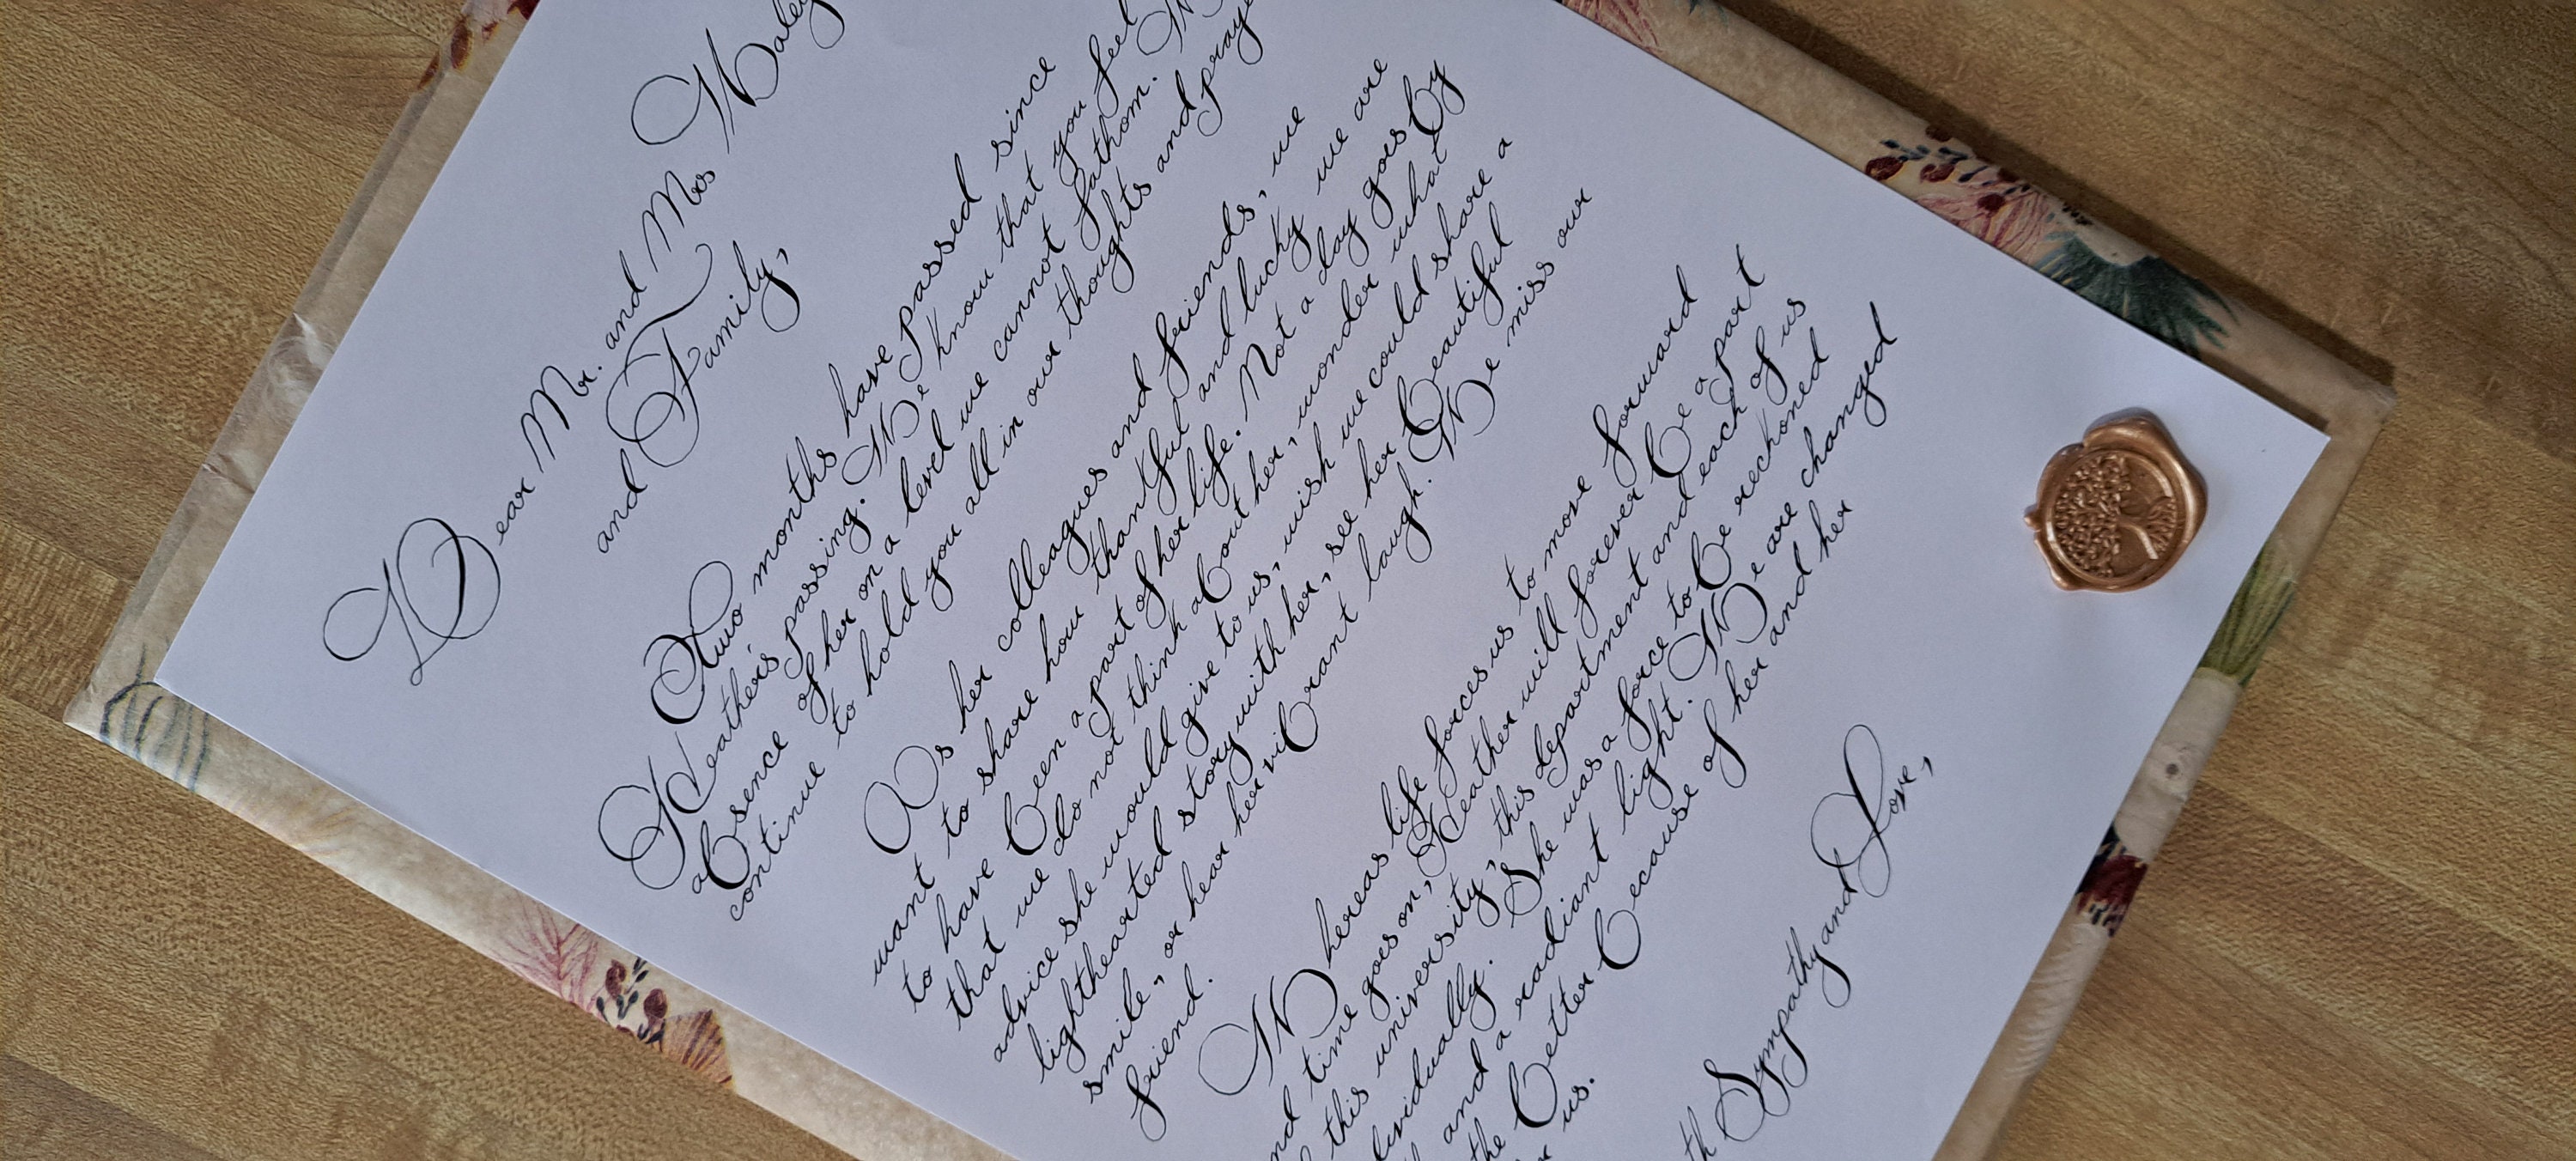 Dear Mr. and Mrs Haley
and Family,
Two months have passed since
Heather's passing. We know that you feel
absence of her on a level we cannot fathom. We
continue to hold you all in our thoughts and praye
As her colleagues and friends, we
want to share how thankful and lucky we are
to have been a part of her life. Not a day goes by
that we do not think about her, wonder what
advice she would give to us, wish we could share a
lighthearted story with her, see her beautiful
smile, or hear her vibrant laugh. We miss our
friend.
Whereas life forces us to move forward
nd time goes on, Heather will forever be a part
this university, this department and each of us
dividually. She was a force to be reckoned
and a radiant light. We are changed
the better because of her and her
us.
th Sympathy and Love,